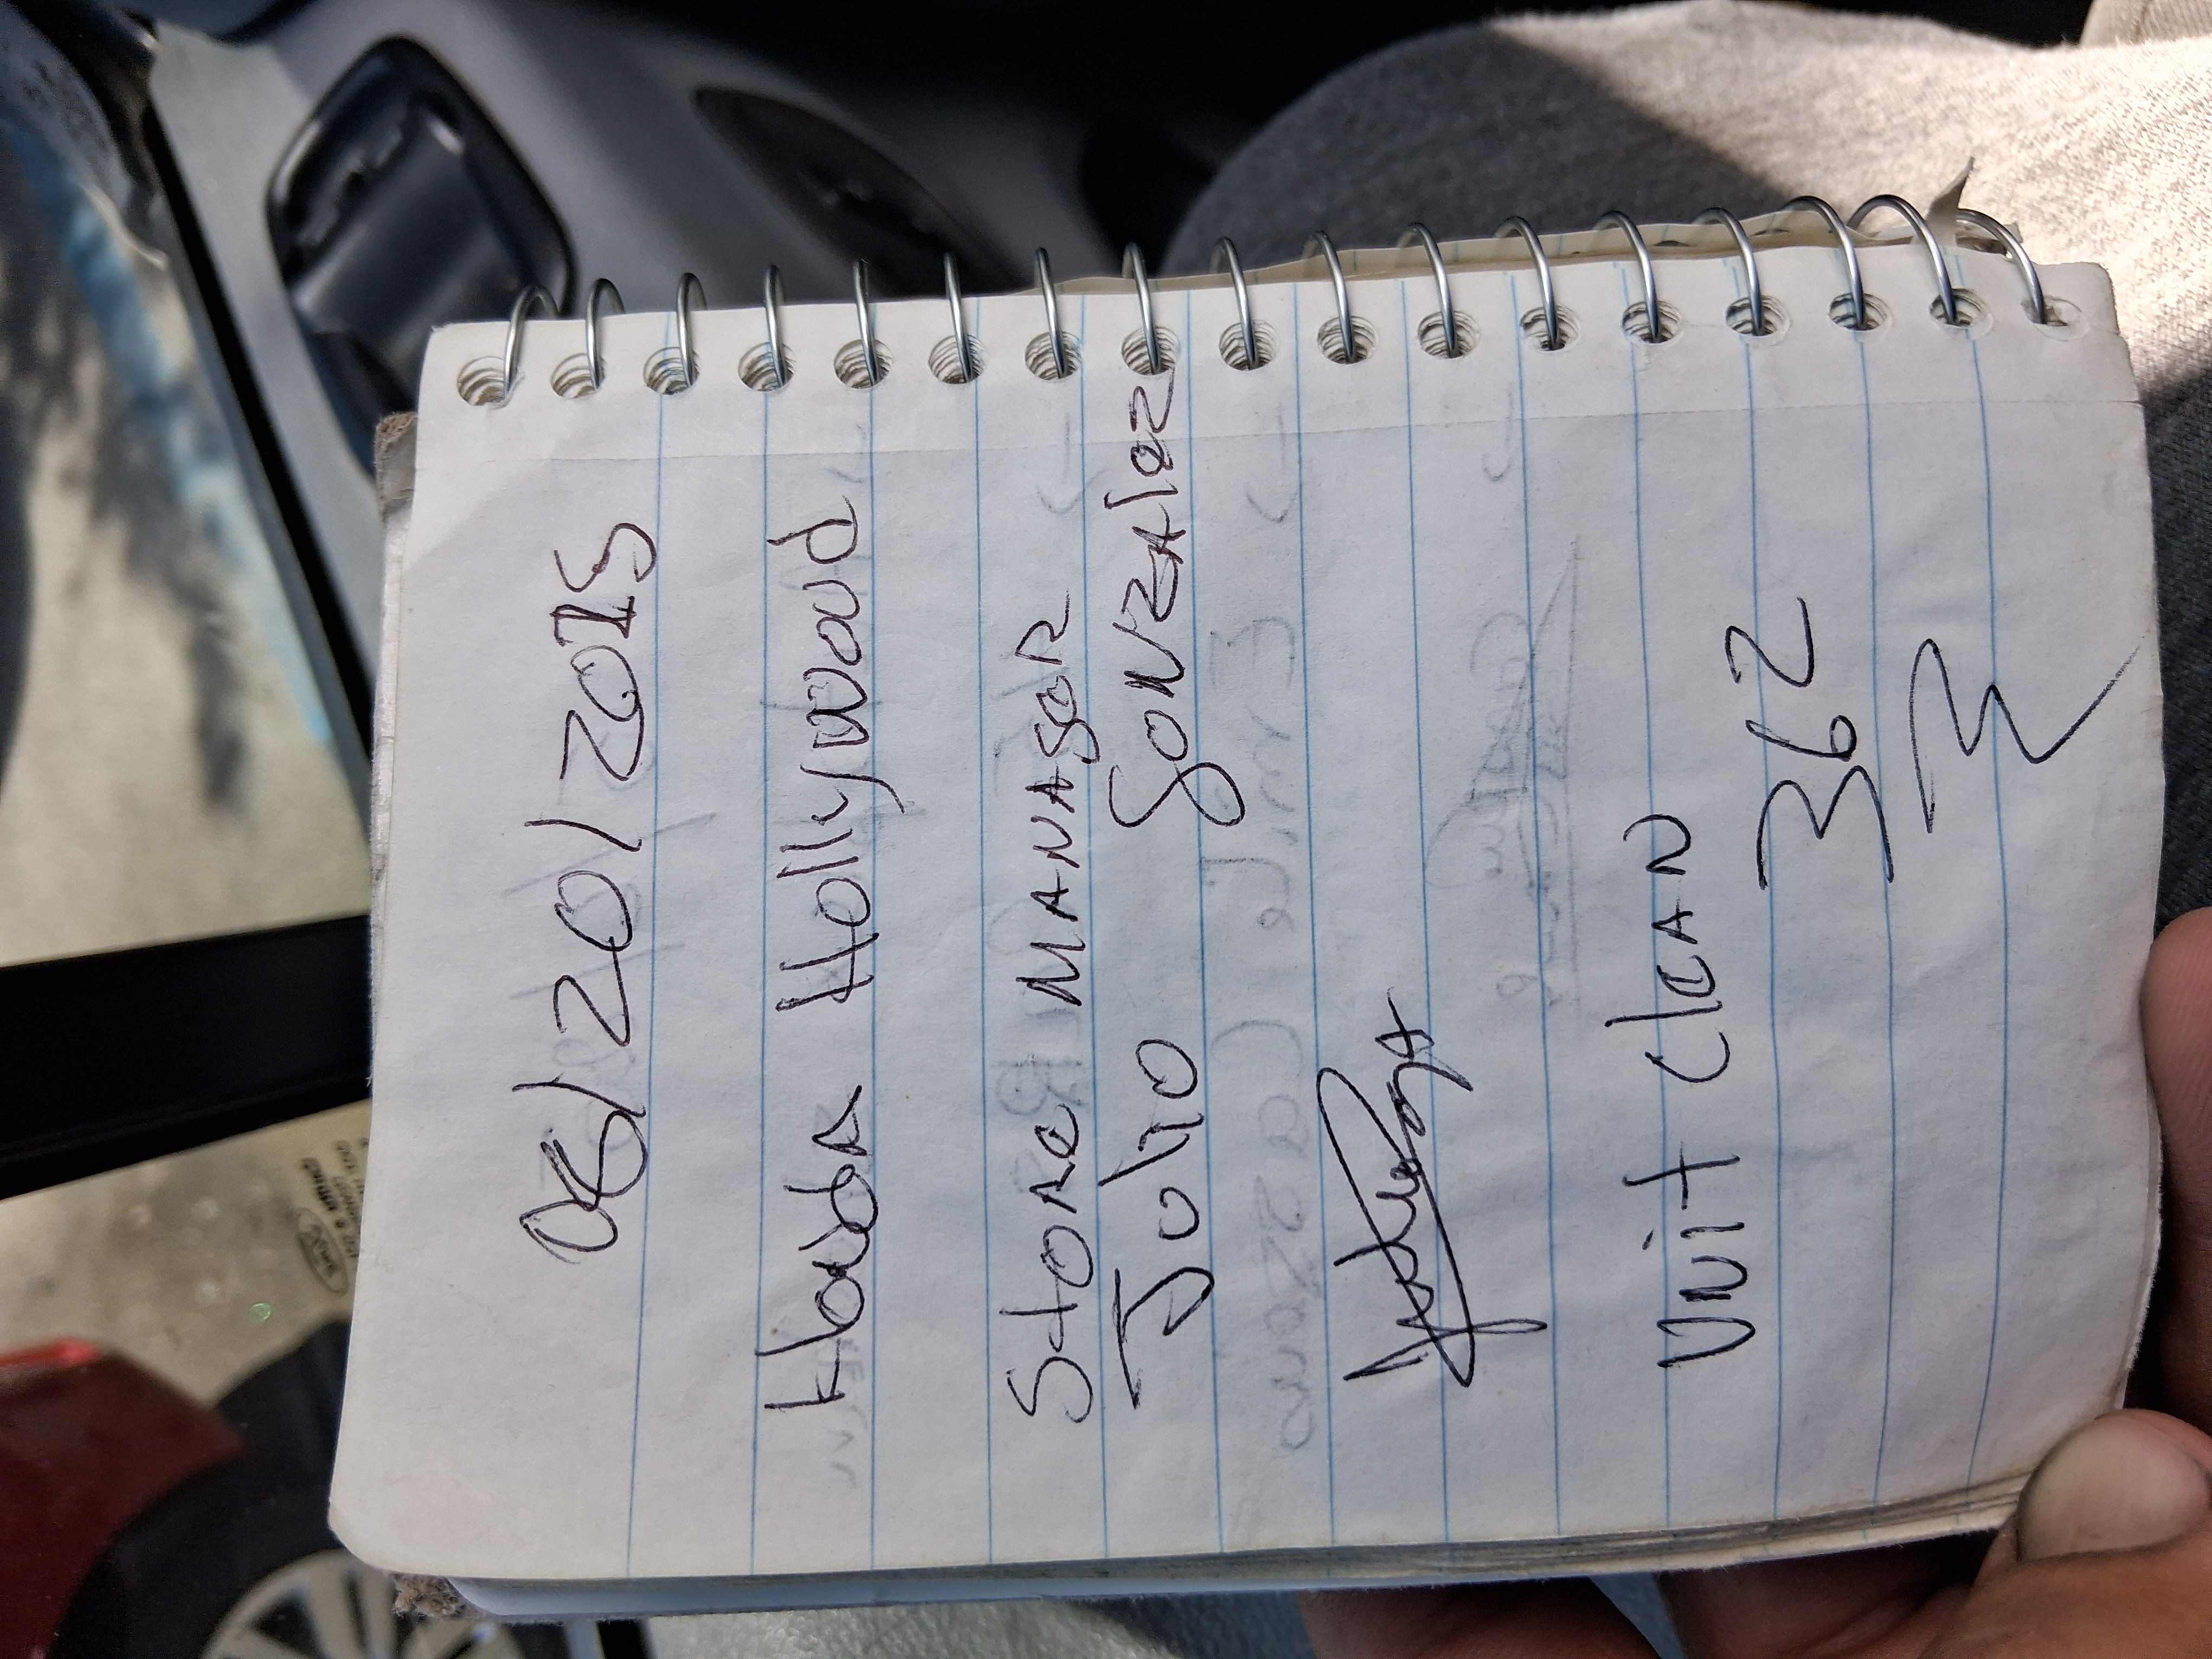 08/20/2015
Honda Hollywood
Store MANAGER
Julio GONZALEZ
Unit Clean
362